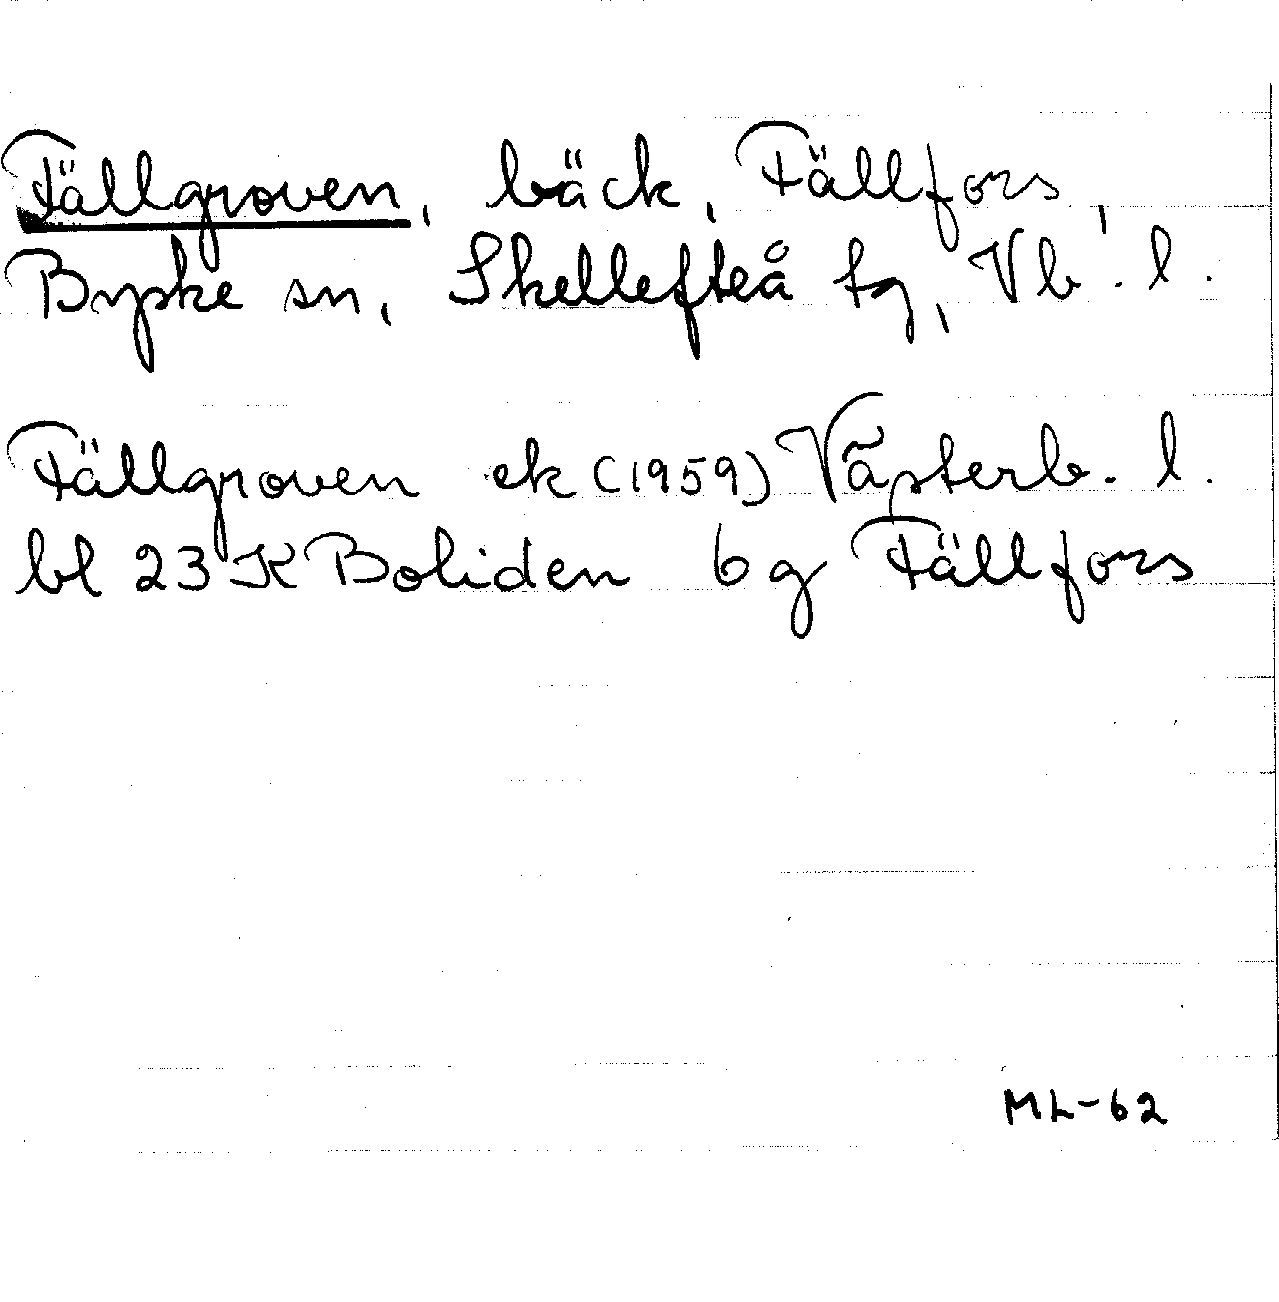 Fällgroven, bäck, Fällfors,
Byske sn, Skellefteå tg, Vb. l.
Fällgroven ek (1959) Västerb. l.
bl 23 K Boliden 6 g Fällfors
ML-62